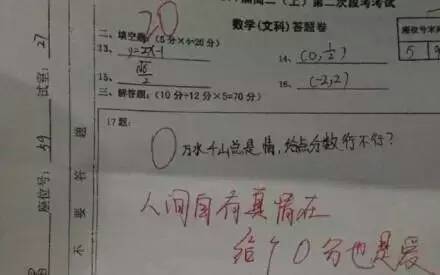 20
高二(上)第二次段考考试
数学(文科)答题卷
二、填空题:(5分×4=20分)
13、y=2x-1
14、(0,1/2)
15、√6/2
16、(-2,2)
三、解答题:(10分+12分×5=70分)
17题:
0
万水千山总是情,给点分数行不行?
人间自有真情在
给个0分也是爱
试室:27
座位号:
不要答题
座位号末
5